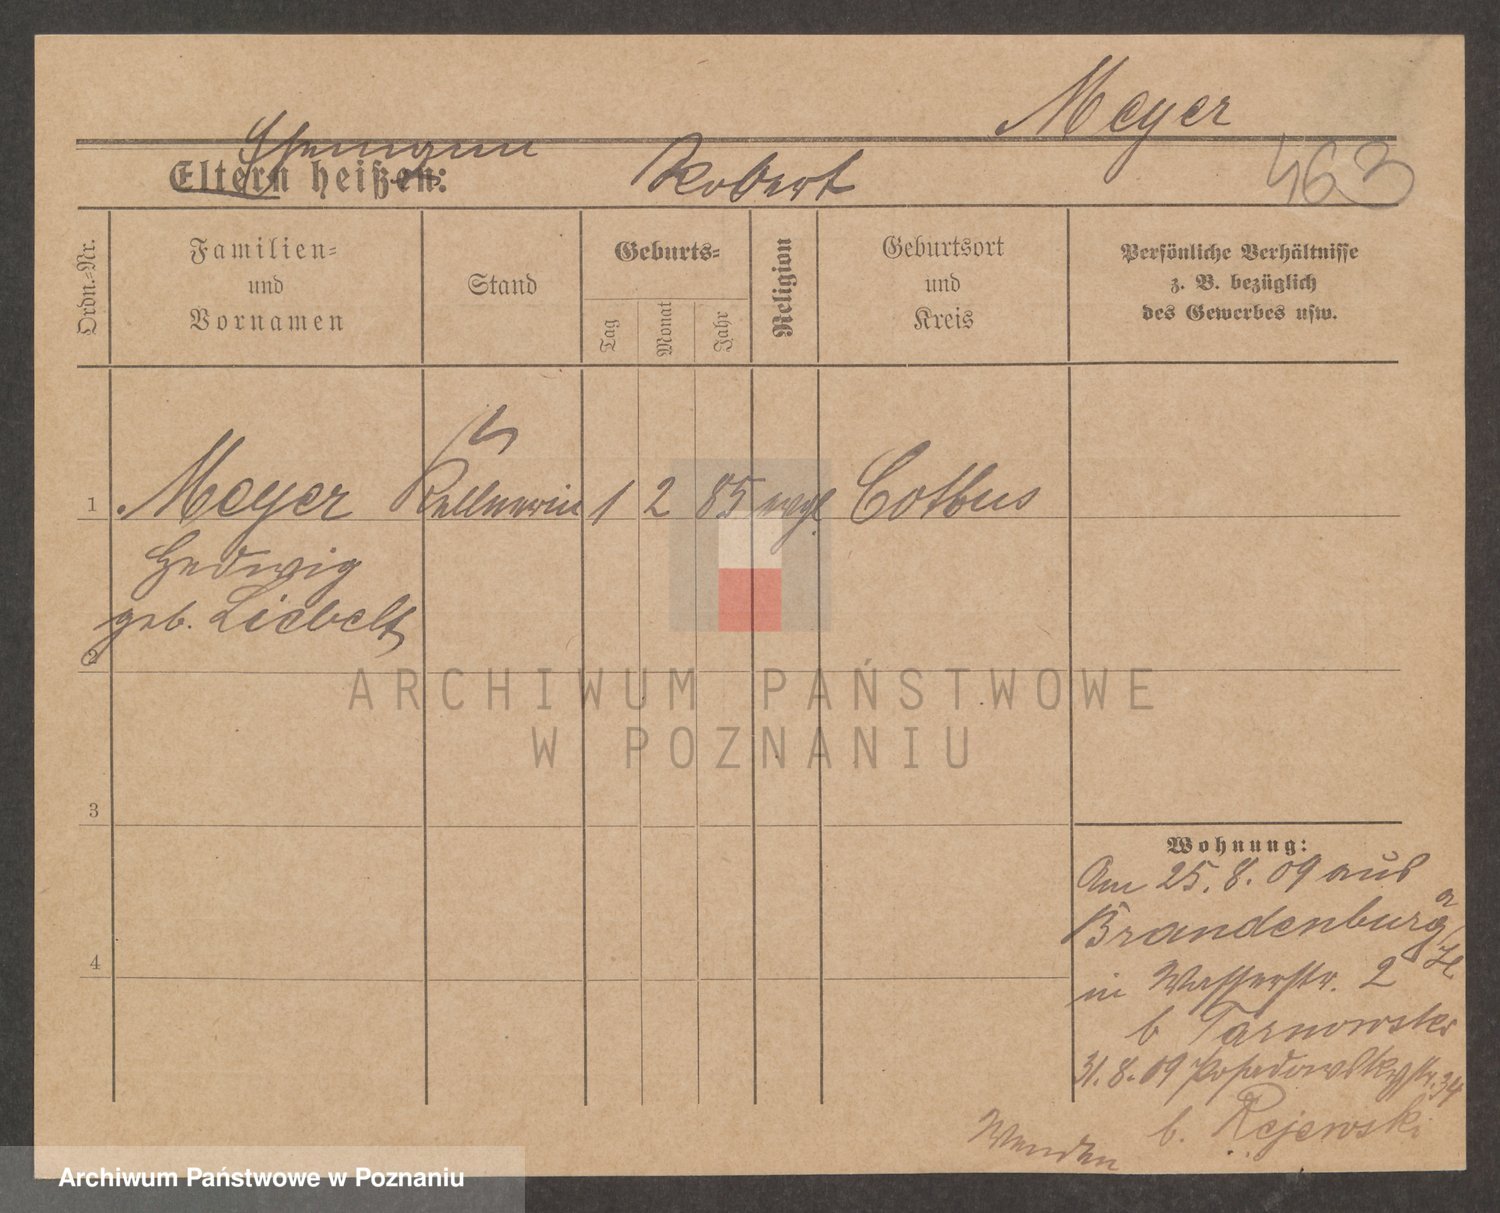 Meyer
Ehemann
Eltern heißen:
Robert
463
Ordn.-Nr.
Familien-
und
Vornamen
Stand
Geburts-
Tag
Monat
Jahr
Religion
Geburtsort
und
Kreis
Persönliche Verhältnisse
z. B. bezüglich
des Gewerbes usw.
1 Meyer Kellnerin 1 2 85 evgl Cotbus
Hedwig
geb. Liebelt
2
ARCHIWUM PAŃSTWOWE
W POZNANIU
3
Wohnung:
Am 25.8.09 aus
Brandenburg a/H.
in Wasserstr. 2
b Tarnowski
4
31.8.09 Posadowskystr. 34
b. Rejewski
Wenden
Archiwum Państwowe w Poznaniu